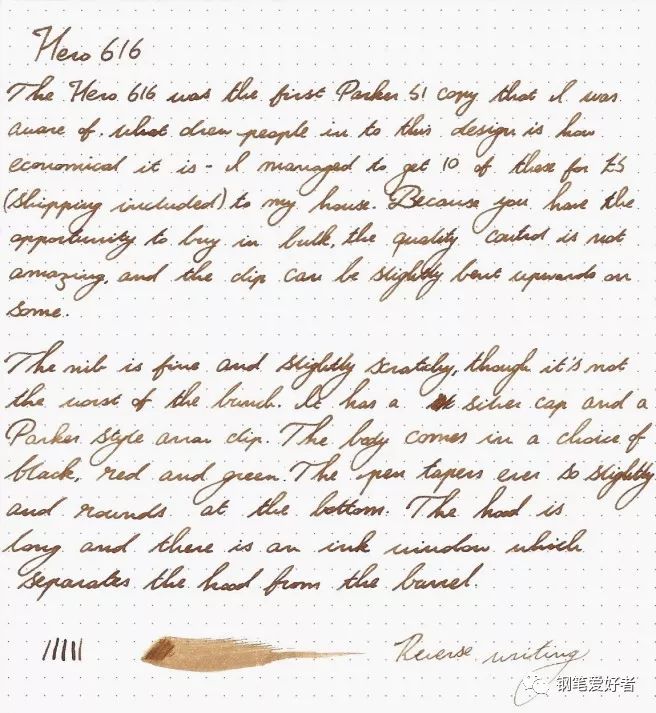 Hero 616
The Hero 616 was the first Parker 51 copy that I was
aware of. what drew people in to this design is how
economical it is - I managed to get 10 of these for £5
(shipping included) to my house. Because you have the
opportunity to buy in bulk, the quality control is not
amazing, and the clip can be slightly bent upwards on
some.
The nib is fine and slightly scratchy, though it's not
the worst of the bunch. It has a silver cap and a
Parker style arrow clip. The body comes in a choice of
black, red and green. The pen tapers ever so slightly
and rounds at the bottom. The hood is
long and there is an ink window which
separates the hood from the barrel.
Reverse writing
钢笔爱好者